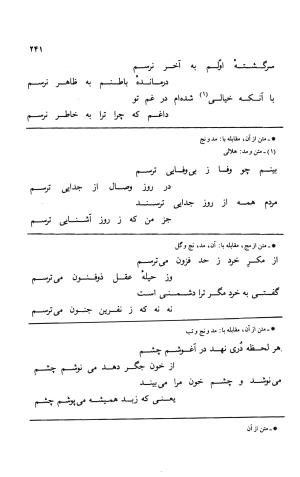 ۲۴۱
سرگشتهٔ اوّلم به آخر نرسم
درماندهٔ باطنم به ظاهر نرسم
با آنکه خیالی(۱) شده‌ام در غم تو
داغم که چرا ترا به خاطر نرسم
* ـ متن از آن، مقابله با: مد و نج
(۱) ـ متن و مد: هلالی
بینم چو وفا ز بی‌وفایی ترسم
در روز وصال از جدایی ترسم
مردم همه از روز جدایی ترسند
جز من که ز روز آشنایی ترسم
* ـ متن از مج، مقابله با: آن، مد، نج و گل
از مکرِ خرد ز حد فزون می‌ترسم
وز حیلهٔ عقل ذوفنون می‌ترسم
گفتی به خرد مگر ترا دشمنی است
نه نه که ز نفرین جنون می‌ترسم
* ـ متن از آن، مقابله با: مد و نج و تب
هر لحظه دُری نهد در آغوشم چشم
از خون جگر دهد می نوشم چشم
می‌نوشد و چشم خون مرا می‌بیند
یعنی که زبد همیشه می‌پوشم چشم
* ـ متن از آن